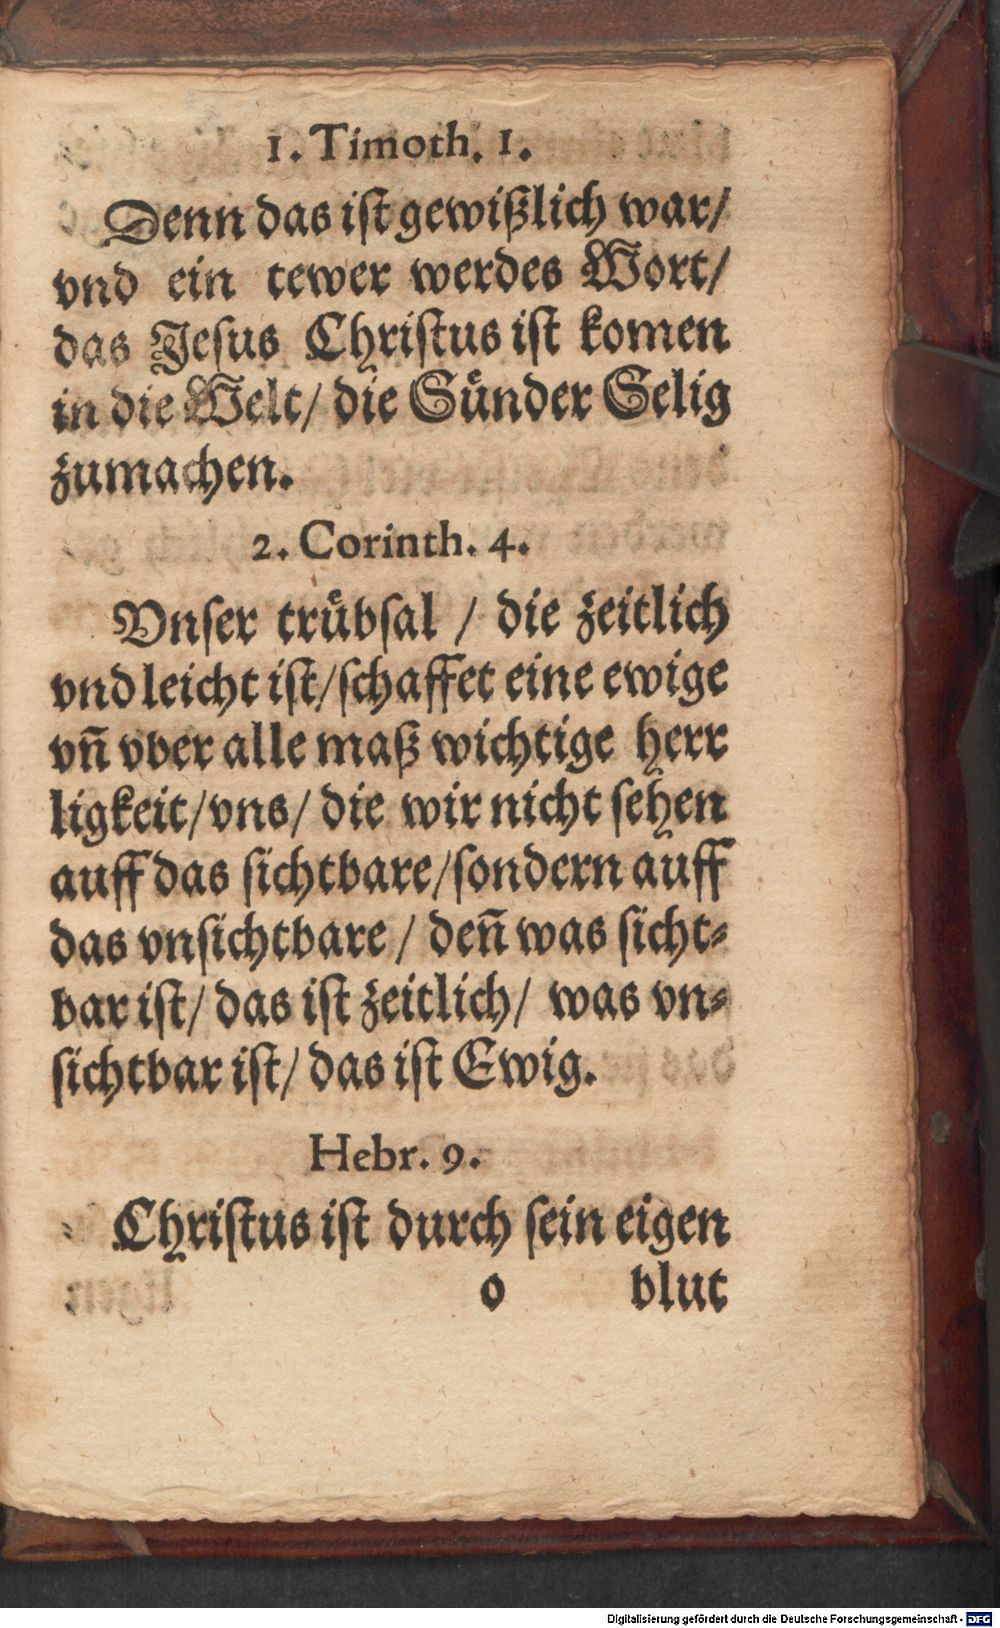 1. Timoth. 1.
Denn das iſt gewißlich war/
vnd ein tewer werdes Wort/
das Jeſus Chriſtus iſt komen
in die Welt/ die Sünder Selig
zumachen.
2. Corinth. 4.
Vnſer trübſal / die zeitlich
vnd leicht iſt/ ſchaffet eine ewige
vn̄ vber alle maß wichtige herr
ligkeit/ vns/ die wir nicht ſehen
auff das ſichtbare/ ſondern auff
das vnſichtbare / den̄ was ſicht⸗
bar iſt/ das iſt zeitlich/ was vn⸗
ſichtbar iſt/ das iſt Ewig.
Hebr. 9.
Chriſtus iſt durch ſein eigen
o blut
Digitalisierung gefördert durch die Deutsche Forschungsgemeinschaft - DFG